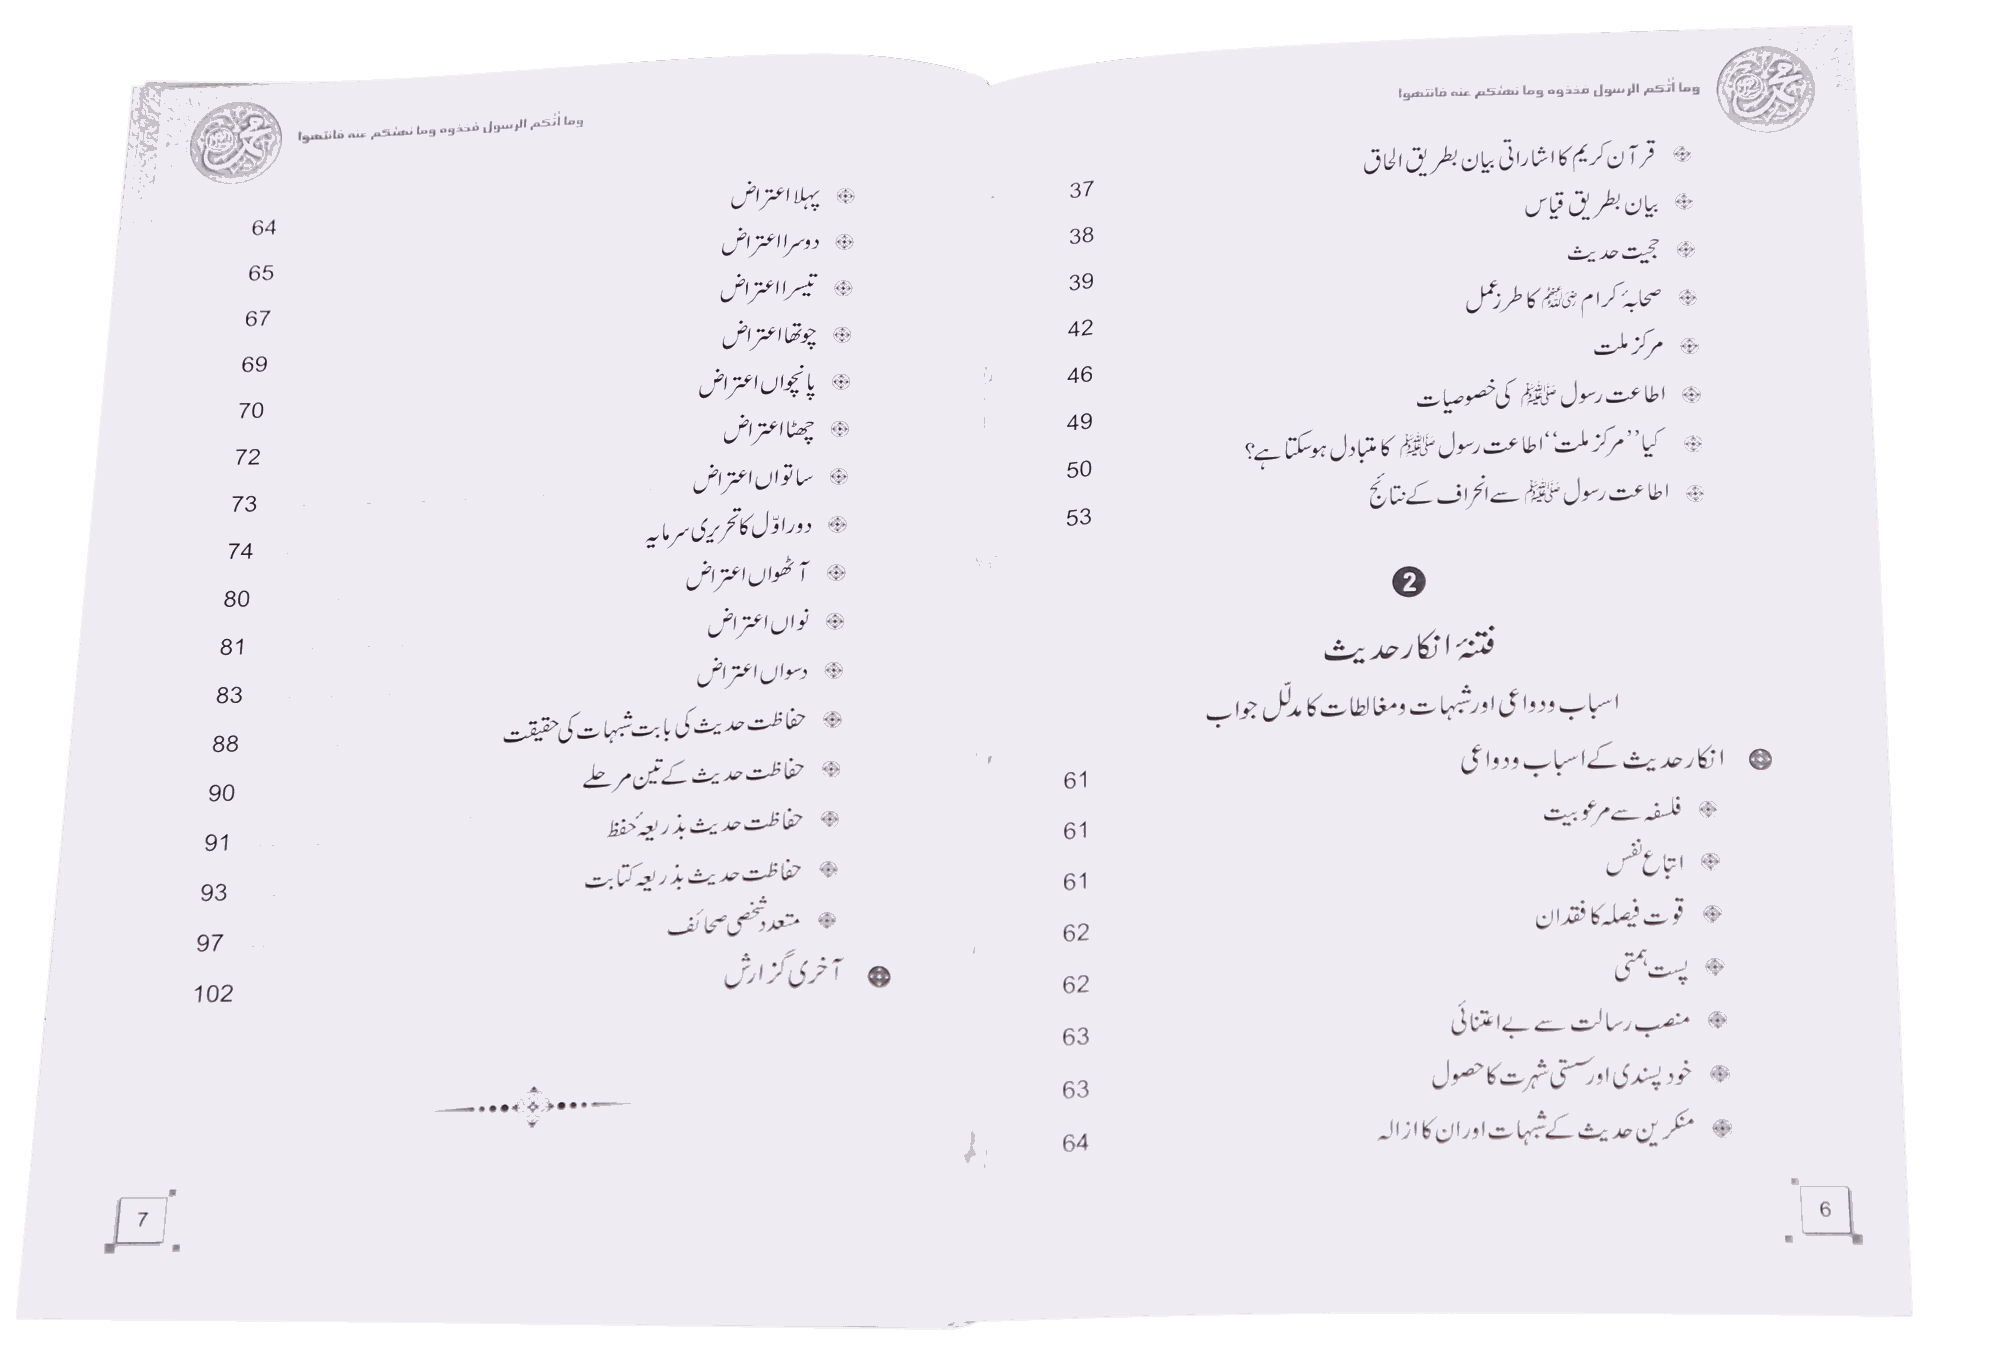 وما أتٰكم الرسول فخذوه وما نهٰىكم عنه فانتهوا
قرآن کریم کا اشاراتی بیان بطریق الحاق 37
بیان بطریق قیاس 38
حجیت حدیث 39
صحابۂ کرام رضی اللہ عنہم کا طرزِ عمل 42
مرکز ملت 46
اطاعت رسول ﷺ کی خصوصیات 49
کیا ’’مرکز ملت‘‘ اطاعت رسول ﷺ کا متبادل ہوسکتا ہے؟ 50
اطاعت رسول ﷺ سے انحراف کے نتائج 53
2
فتنۂ انکار حدیث
اسباب ودواعی اور شبہات ومغالطات کا مدلّل جواب
انکار حدیث کے اسباب ودواعی 61
فلسفہ سے مرعوبیت 61
اتباع نفس 61
قوت فیصلہ کا فقدان 62
پست ہمتی 62
منصب رسالت سے بے اعتنائی 63
خود پسندی اور سستی شہرت کا حصول 63
منکرین حدیث کے شبہات اور ان کا ازالہ 64
6
وما أتٰكم الرسول فخذوه وما نهٰىكم عنه فانتهوا
پہلا اعتراض 64
دوسرا اعتراض 65
تیسرا اعتراض 67
چوتھا اعتراض 69
پانچواں اعتراض 70
چھٹا اعتراض 72
ساتواں اعتراض 73
دور اوّل کا تحریری سرمایہ 74
آٹھواں اعتراض 80
نواں اعتراض 81
دسواں اعتراض 83
حفاظت حدیث کی بابت شبہات کی حقیقت 88
حفاظت حدیث کے تین مرحلے 90
حفاظت حدیث بذریعۂ حفظ 91
حفاظت حدیث بذریعہ کتابت 93
متعدد شخصی صحائف 97
آخری گزارش 102
7